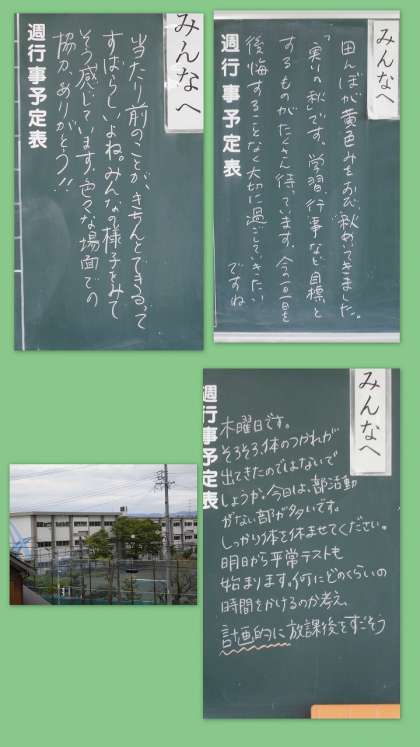 みんなへ
当たり前のことが、きちんとできるって
すばらしいよね。みんなの様子をみて
そう感じています。色々な場面での
協力、ありがとう!!
週行事予定表
みんなへ
田んぼが黄色みをおび、秋めいてきました。
「実りの秋」です。学習、行事など目標と
するものがたくさん待っています。今の一日一日を
後悔することなく大切に過ごしていきたい
ですね
週行事予定表
みんなへ
週行事予定表
木曜日です。
そろそろ、体のつかれが
出てきたのではないで
しょうか。今日は、部活動
がない部が多いです。
しっかり体を休ませてください。
明日から平常テストも
始まります。何にどのくらいの
時間をかけるのか考え、
計画的に放課後をすごそう